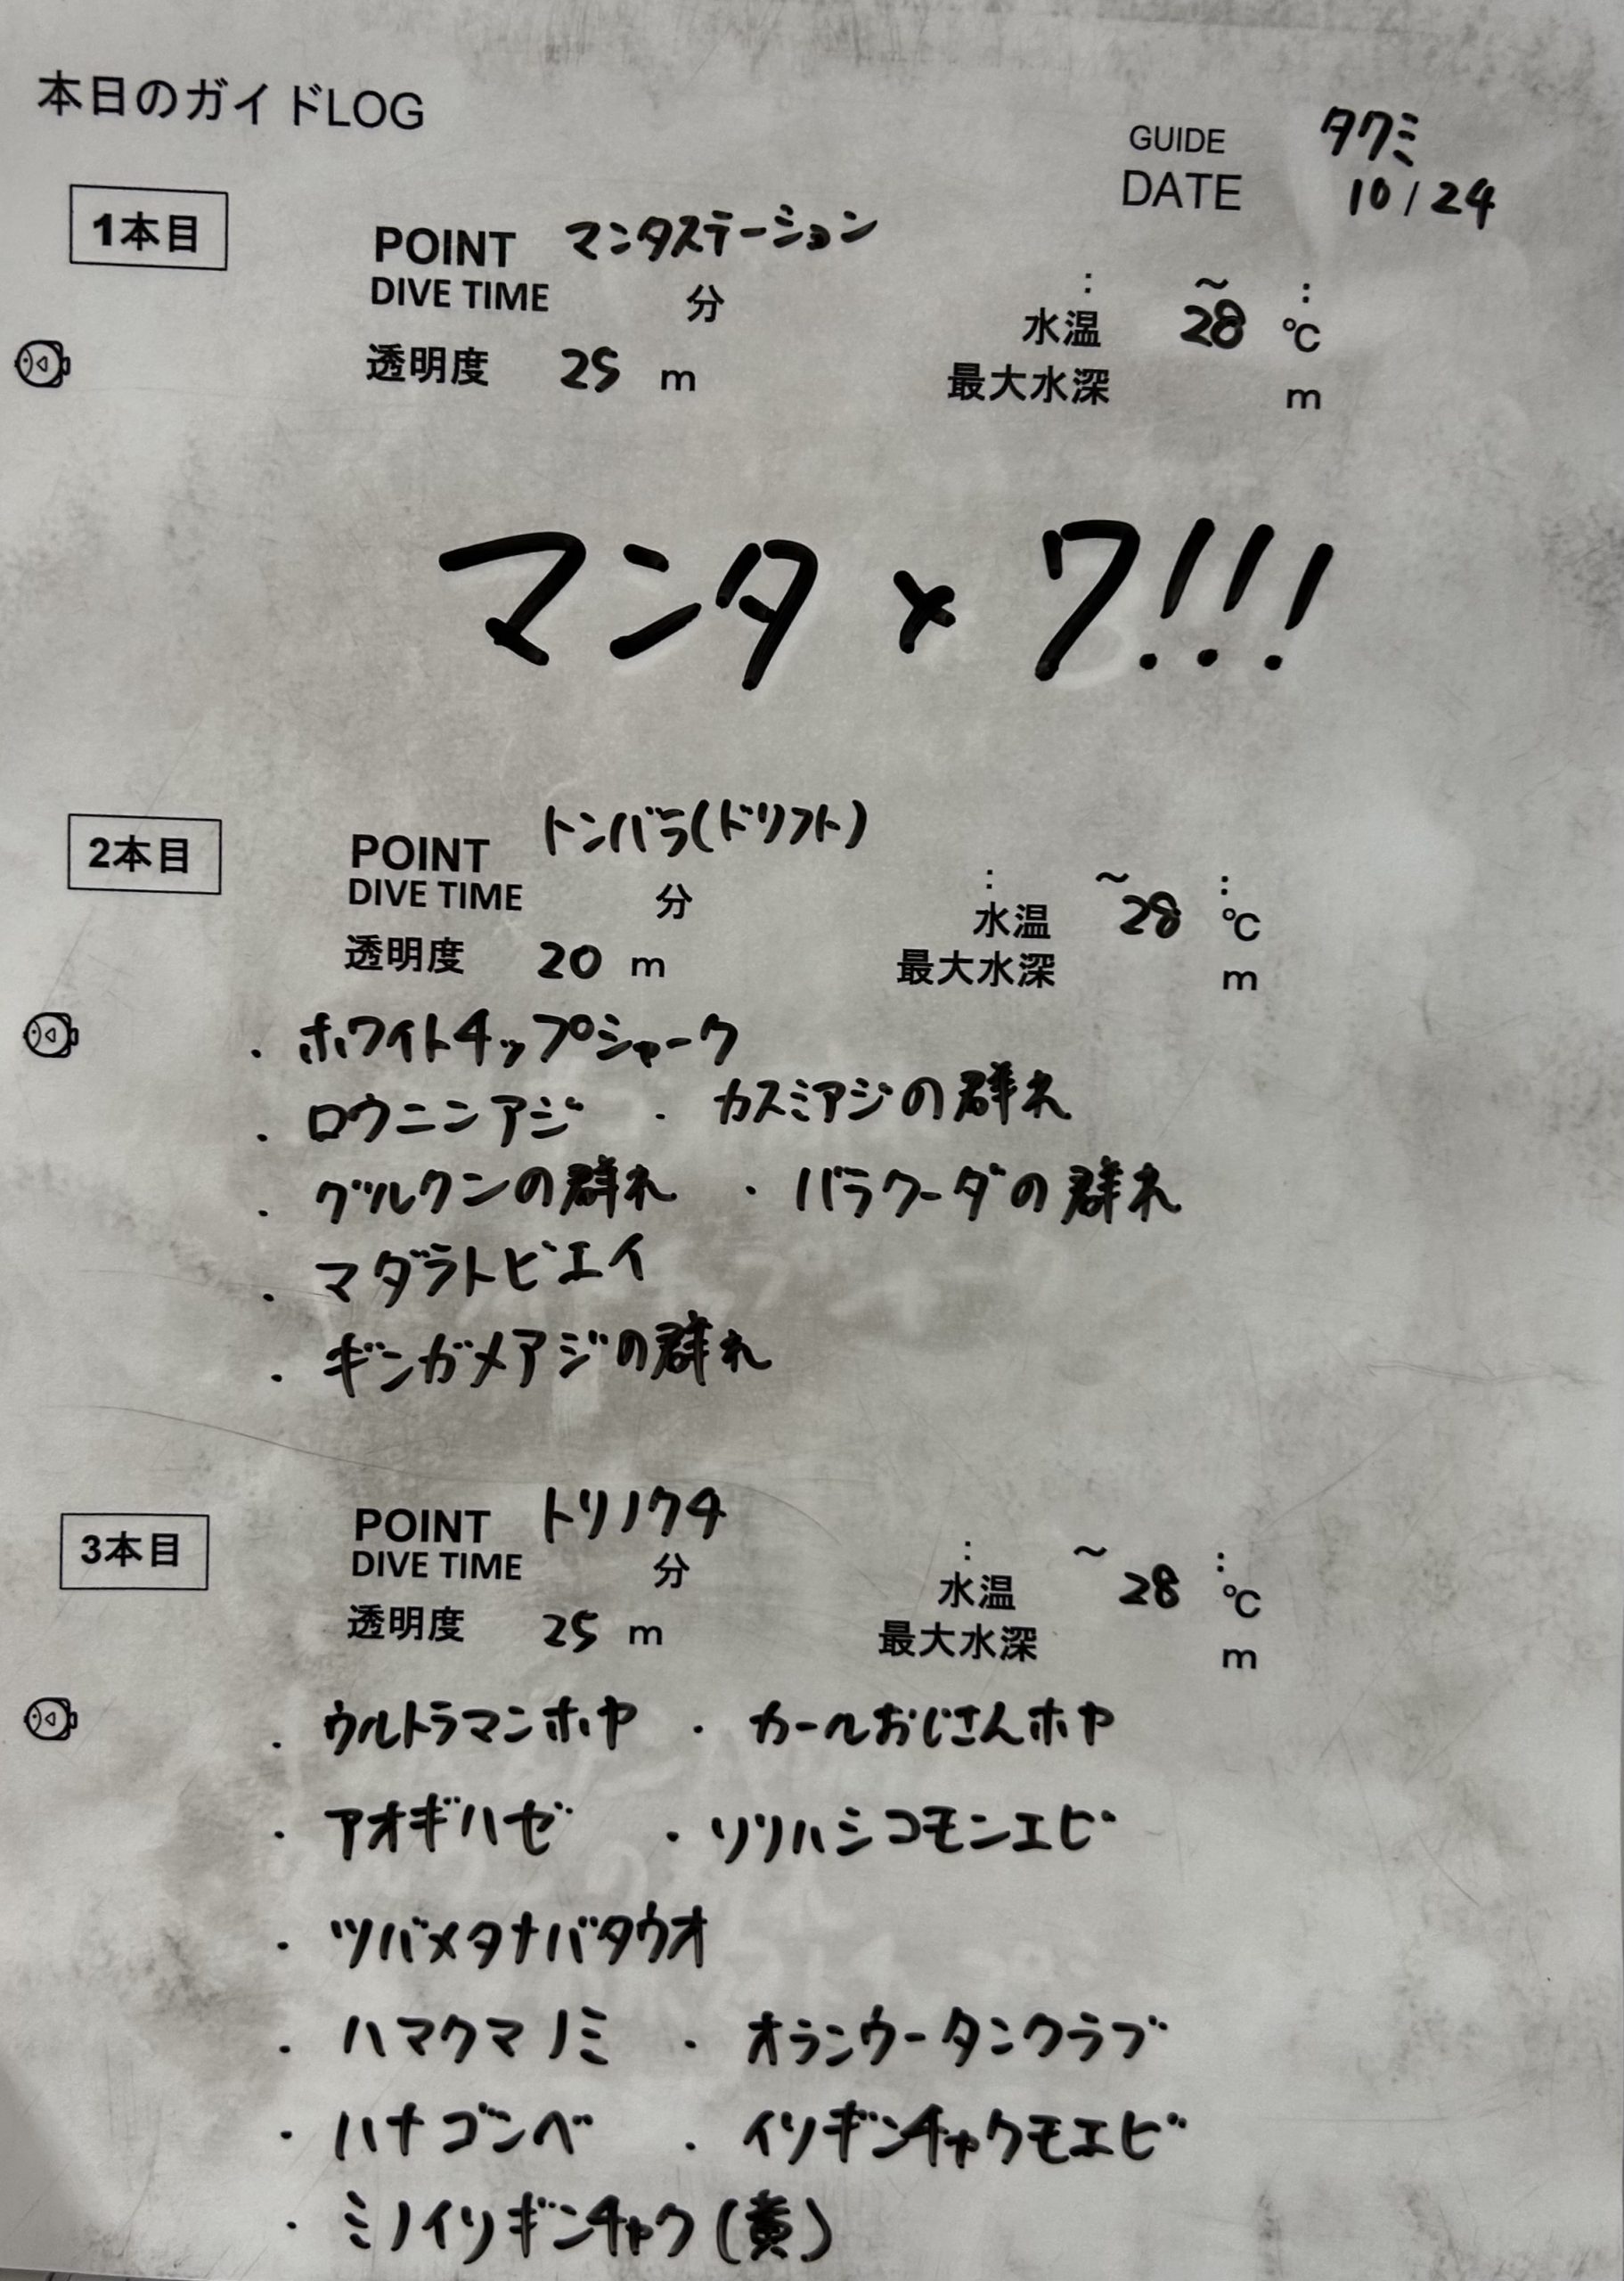 本日のガイドLOG
GUIDE タクミ
DATE 10/24
1本目
POINT マンタステーション
DIVE TIME 分 : ～ :
水温 28 ℃
透明度 25 m
最大水深 m
マンタ × 7!!!
2本目
POINT トンバラ(ドリフト)
DIVE TIME 分 : ～ :
水温 28 ℃
透明度 20 m
最大水深 m
・ホワイトチップシャーク
・ロウニンアジ ・カスミアジの群れ
・グルクンの群れ ・バラクーダの群れ
・マダラトビエイ
・ギンガメアジの群れ
3本目
POINT トリノクチ
DIVE TIME 分 : ～ :
水温 28 ℃
透明度 25 m
最大水深 m
・ウルトラマンホヤ ・カールおじさんホヤ
・アオギハゼ ・ソリハシコモンエビ
・ツバメタナバタウオ
・ハマクマノミ ・オランウータンクラブ
・ハナゴンベ ・イソギンチャクモエビ
・ミノイソギンチャク(黄)